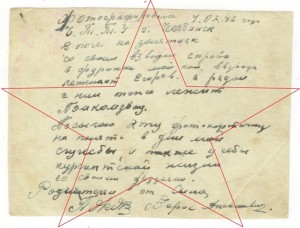 Фотографировался 9.02.46 года
Ч.Т.Т.У г. Челябинск
В поле на занятиях
со своим взводом справа
в фуражке мой ком. взвода
лейтенант Егоров. а рядом
с ним тоже лежит
Помкомвзвод.
Посылаю эту фотокарточку
на память. в дни моей
службы и также учебы
курсантской жизни
со своими друзьями.
Родителям от сына
Борис